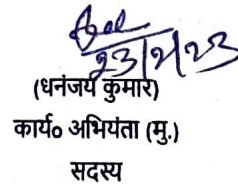 23/2/23
(धनंजय कुमार)
कार्य० अभियंता (मु.)
सदस्य